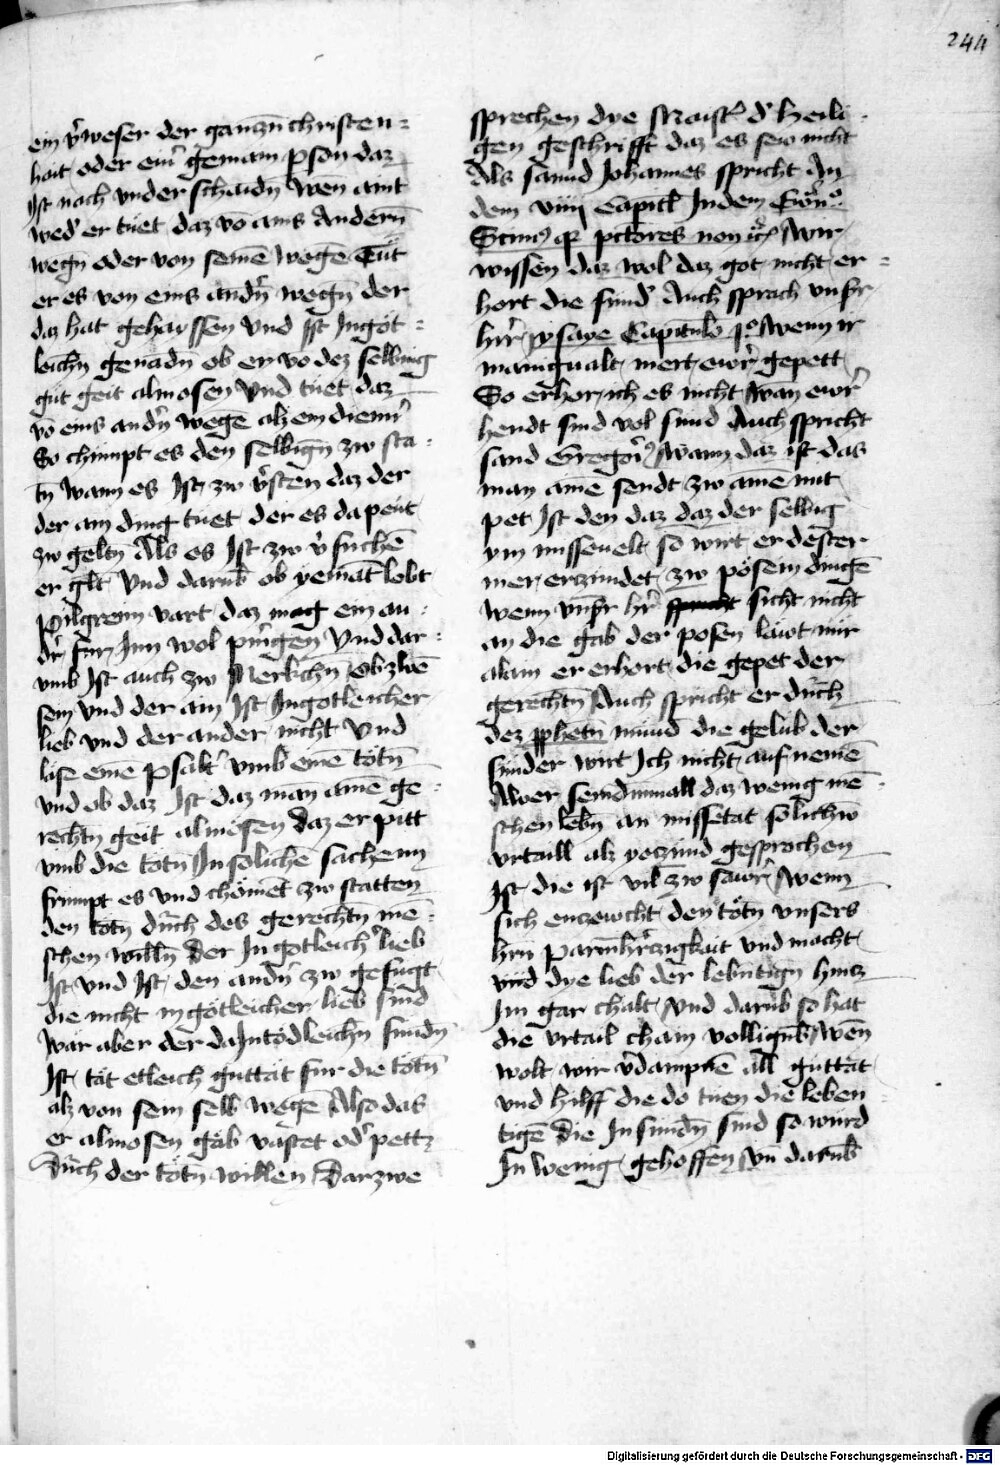 244
ein v̓weser der ganczn̄ christen=
hait oder ein̓ gemain pson daz
Ist nach vnder schaidn̄ wen̄ amt
wed̓ er tuet daz vō ains andern̄
wegn̄ oder von seinē wegē Tut
er es von eins andn̓ wegn̄ der
daz hat gehayssen vnd Ist Ingöt=
leichn̄ genadn̄ ob er vō dez selbing
gut geit almosen vnd tuet daz
vō eins andn̓ wegē alz ein dienn̓
So chimpt es den selbign̄ zw sta=
tn̄ wann es Ist zw v̓sten daz der
der ain ding tuet der es da peut
zw geltn̄ Als es Ist zw v̓suchē
er gilt Vnd darub̄ ob yemāt lobt
pilgreim vart daz mag ein an=
dr̓ für Inn wol pringen Vnd dar=
vmb Ist auch zw Merkchn̄ ob zwē
sein vnd der ain Ist Ingotleicher
lieb vnd der ander nicht Vnd
läse einē psalt̓ vmb einē tötn̄
vnd ob daz Ist daz man ainē ge=
rechtn̄ geit almösen Daz er pitt
vmb die totn̄ In sölichē sachenn
frümpt es vnd chömēt zw statten
den totn̄ dur̄ch des gerechtn̄ mē=
schen willn̄ Der In gotleich̓ lieb
Ist vnd Ist den andn̓ zw gefugt
die nicht in götleicher lieb sind
Wär aber der da In tödleichn̄ sundn̄
Ist tät etleich guttät für die totn̄
alz von sein selb wegē Also das
er almosen gäb vastet od̓ pettz
Dur̄ch der totn̄ willen Darzwe
sprechen dye Maist̓ d̓ heili=
gen geschrifft daz es sew nicht
Als sannd Johannes spricht An
dem viiij Capitl̄ In dem Ewȯ
Scim9 qz pctores non &c Wir
wissen daz wol daz got nicht er=
hort die sünd̓ Auch sprach vnsr̓
hr̓r ysaye Capitulo jo Wenn ir
manigualt mert ewr̓ gepett
So erhor ich es nicht wan̄ ewr̓
hendt sind vol sünd Auch spricht
sand Gregori9 Wann daz ist das
man ainē sendt zw ainē mit
pet Ist den daz daz der selbig
ym missevelt so wirt er dester
mer erzündet zw pösein dingē
Wenn vnsr̓ hr̓ sicht nicht
an die gab der posen läwt nür
alain er erhort die gepet der
gerechtn̄ Auch spricht er dur̄ch
dez pphetn̄ münd die gelub der
sünder wirt Ich nicht auf nemē
Aber seindmmall daz wenig mē=
schen lebn̄ an missetät sölichew
vrtaill alz yeczund gesprochen
Ist die ist vil zw sawr̓ Wenn
sich enzewcht den totn̄ vnsers
hrn̄ parmhr̓czigkait vnd macht
vnd dye lieb der lebntign̄ hincz
Im gar chalt Vnd darub̄ so hat
die vrtail cham volligūk Wen̄
wolt wir v̓dampnē all guttät
vnd hilff die do tuen die leben=
tigē Die In sundn̄ sind so würd
In wenig gehoffen Vn̄ darub̄
Digitalisierung gefördert durch die Deutsche Forschungsgemeinschaft - DFG